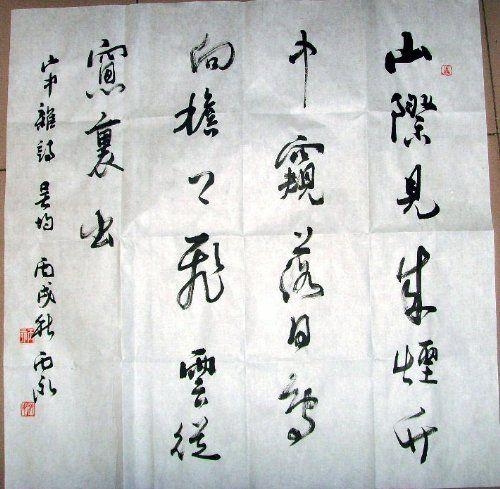 山際見來煙竹
中窺落日鳥
向檐上飛雲從
窻裏出
山中雜詩 吳均 丙戌秋